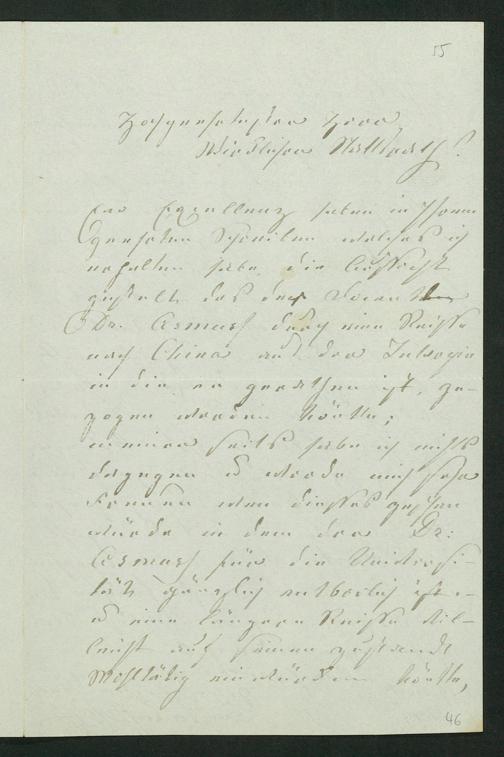 15
Hochgeehrtester Herr,
Wirklicher Stattsrath!
Eur Excellenz haben in Ihrem
geehrten Schreiben welches ich
erhalten habe, die Aussicht
gestelt das der
Dr. Asmuss durch eine Reisse
nach China aus der
in die er gerathen ist, ge-
zogen werden könte;
meiner seits habe ich nichts
dagegen u werde mich sehr
freuen wen diesses geschen
würde in dem der Dr:
Asmuss für die Universi-
tät gänzlich entberlich ist
u eine längere Reisse vil-
leicht auf seinen zustande
Wohltätig einwürken könte,
46